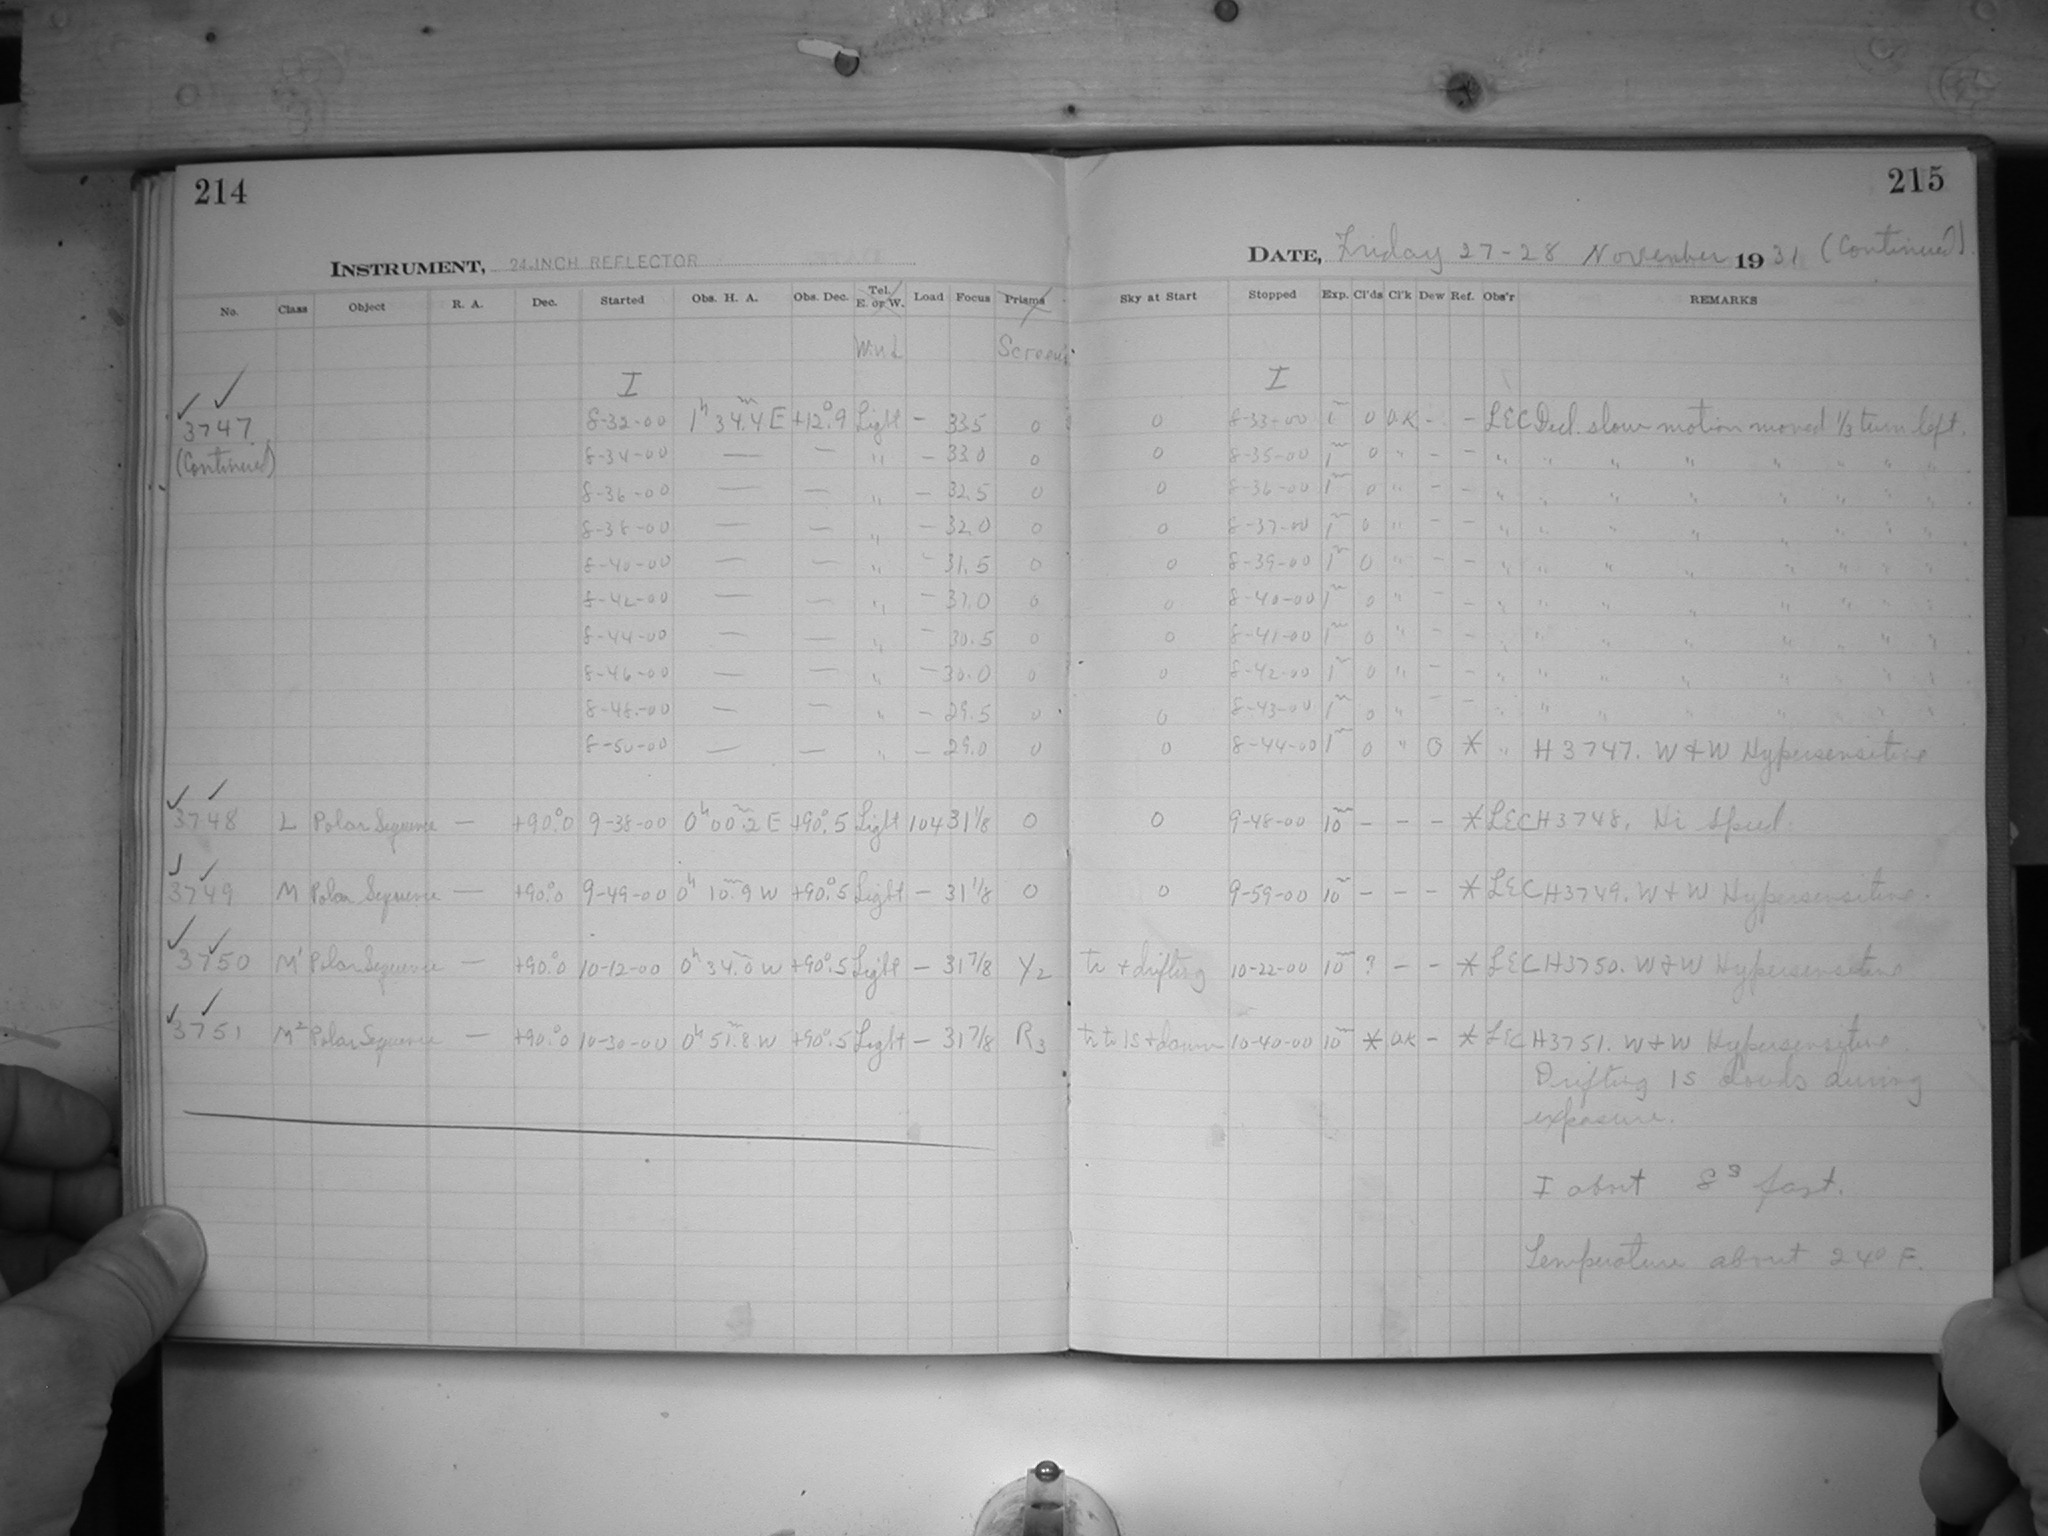 214
215
INSTRUMENT, 24-INCH REFLECTOR
DATE, Friday 27-28 November 1931 (Continued)
No. Class Object R. A. Dec. Started Obs. H. A. Obs. Dec. Tel. E. or W. Load Focus Prisms Sky at Start Stopped Exp. Cl'ds Cl'k Dew Ref. Obs'r REMARKS
Wind Screens
I I
3747 8-32-00 1h 34m.4 E +12°.9 Light - 33.5 0 0 8-33-00 1m 0 O.K - - LEC Decl. slow motion moved 1/3 turn left.
(Continued) 8-34-00 — — " - 33.0 0 0 8-35-00 1m 0 " - - " " " " " " " "
8-36-00 — — " - 32.5 0 0 8-36-00 1m 0 " - - " " " " " " " "
8-38-00 — — " - 32.0 0 0 8-37-00 1m 0 " - - " " " " " " " "
8-40-00 — — " - 31.5 0 0 8-39-00 1m 0 " - - " " " " " " " "
8-42-00 — — " - 31.0 0 0 8-40-00 1m 0 " - - " " " " " " " "
8-44-00 — — " - 30.5 0 0 8-41-00 1m 0 " - - " " " " " " " "
8-46-00 — — " - 30.0 0 0 8-42-00 1m 0 " - - " " " " " " " "
8-48-00 — — " - 29.5 0 0 8-43-00 1m 0 " - - " " " " " " " "
8-50-00 — — " - 29.0 0 0 8-44-00 1m 0 " 0 * " H 3747. W & W Hypersensitive
3748 L Polar Sequence — +90°.0 9-38-00 0h 00m.2 E +90°.5 Light 104 31 1/8 0 0 9-48-00 10m - - - * LEC H3748. Hi Speed.
3749 M Polar Sequence — +90°.0 9-49-00 0h 10m.9 W +90°.5 Light - 31 1/8 0 0 9-59-00 10m - - - * LEC H3749. W & W Hypersensitive.
3750 M' Polar Sequence — +90°.0 10-12-00 0h 34m.0 W +90°.5 Light - 31 7/8 Y2 tr + drifting 10-22-00 10m ? - - * LEC H3750. W & W Hypersensitive
3751 M2 Polar Sequence — +90°.0 10-30-00 0h 51m.8 W +90°.5 Light - 31 7/8 R3 tr to 1S + 10-40-00 10m * O.K - * LEC H3751. W & W Hypersensitive.
Drifting 1S clouds during
exposure.
I about 8s fast.
Temperature about 24° F.